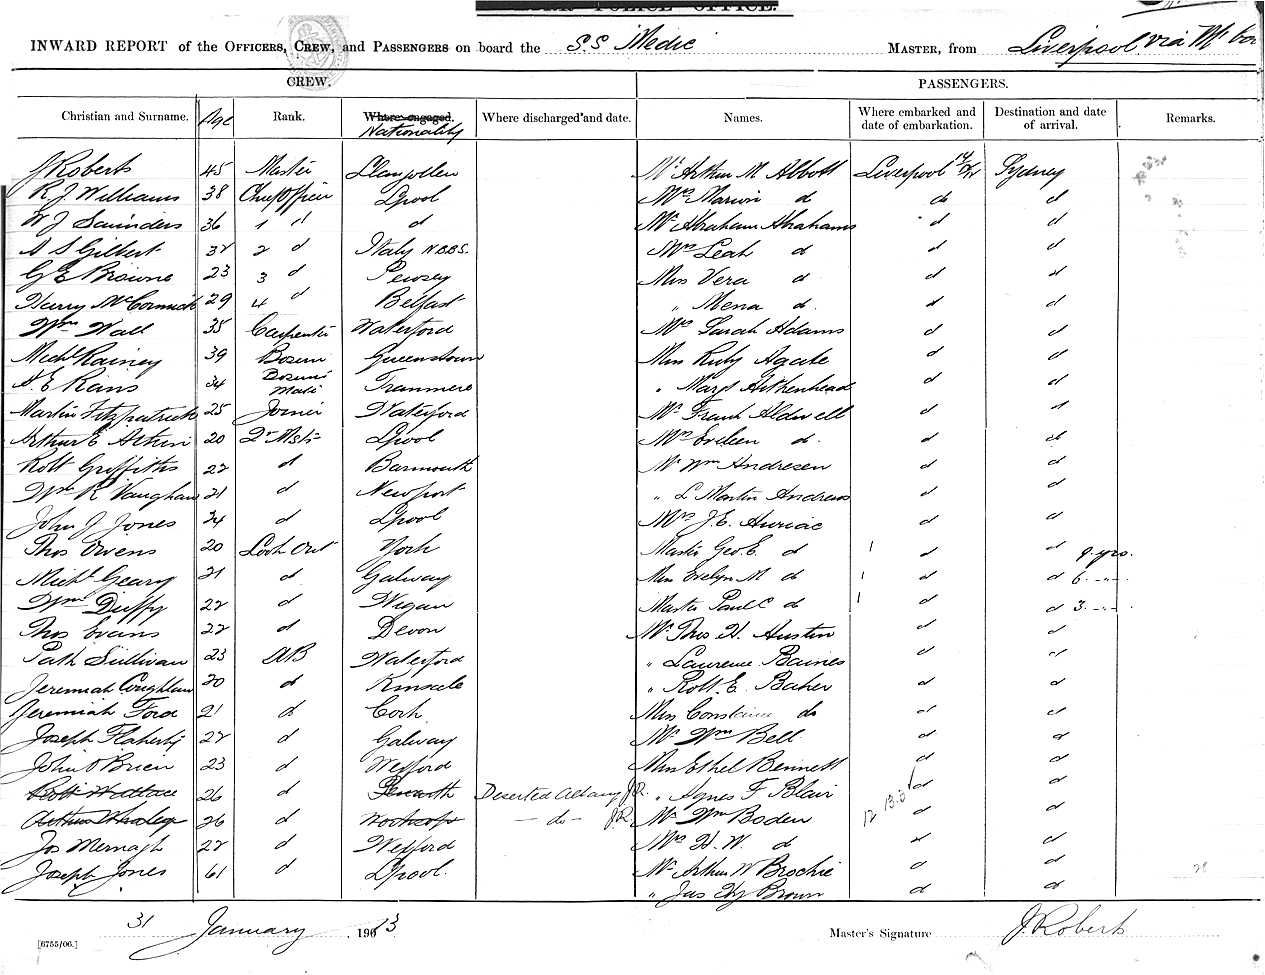 POLICE OFFICE.
INWARD REPORT of the OFFICERS, CREW, and PASSENGERS on board the S.S Medic MASTER, from Liverpool via
CREW. PASSENGERS.
Christian and Surname. Age Rank. Where engaged. Nationality Where discharged and date. Names. Where embarked and date of embarkation. Destination and date of arrival. Remarks.
J Roberts 45 Master Llangollen Mr Arthur M Abbott Liverpool Sydney
R. J. Williams 38 Chief Officer Lpool Mrs Marion d do d
W J Saunders 36 1 d d Mr Abraham Abrahams d d
A S Gilbert 32 2 d Italy N.B.B.S. Mrs Leah d d d
G E Browne 23 3 d Pewsey Miss Vera d d d
Harry McCormick 29 4 d Belfast " Mena d. d d
Wm Wall 35 Carpenter Waterford Mrs Sarah Adams d d
Michl Rainey 39 Bosun Queenstown Miss Ruby Agate d d
E Rans 34 Bosuns Mate Tranmere " Margt Aitkenhead d d
Martin Fitzpatrick 25 Joiner Waterford Mr Frank Aldwell d d
Arthur E Aitkin 20 Qr Mstr Lpool Mrs Eveleen d. d d
Robt Griffiths 22 d Barmouth Mr Wm Andresen d d
Wm R Vaughan 21 d Newport " L Martin Andrews d d
John J Jones 34 d Lpool Mrs J. E. Auriac d d
Thos Owens 20 Look Out York Master Geo. E. d 1 d d 9 yrs.
Michl Geary 21 d Galway Miss Evelyn M d 1 d d 6 - "-
Wm Duffy 22 d Wigan Master Paul C d 1 d d 3 - "-
Thos Evans 22 d Devon Mr Thos H. Austin d d
Patk Sullivan 23 AB Waterford " Laurence Baines d d
Jeremiah Coughlan 30 d Kinsale " Robt. E. Baker d d
Jeremiah Ford 21 d Cork Miss Constance do d d
Joseph Flaherty 22 d Galway Mr Wm Bell d d
John O'Brien 23 d Wexford Miss Ethel Bennett d d
Robt Wallace 26 d Penarth Deserted Albany J.R. " Agnes F Blair d d
26 d Worksop - do - J.R. Mr Wm Boden 12 13.5 d d
Jas Mernagh 22 d Wexford Mrs H. W. d d d
Joseph Jones 61 d Lpool. Mr Arthur W Brochie d d
" Jas Hy Brown d d
31 January 1913 Master's Signature J. Roberts
[6755/06.]